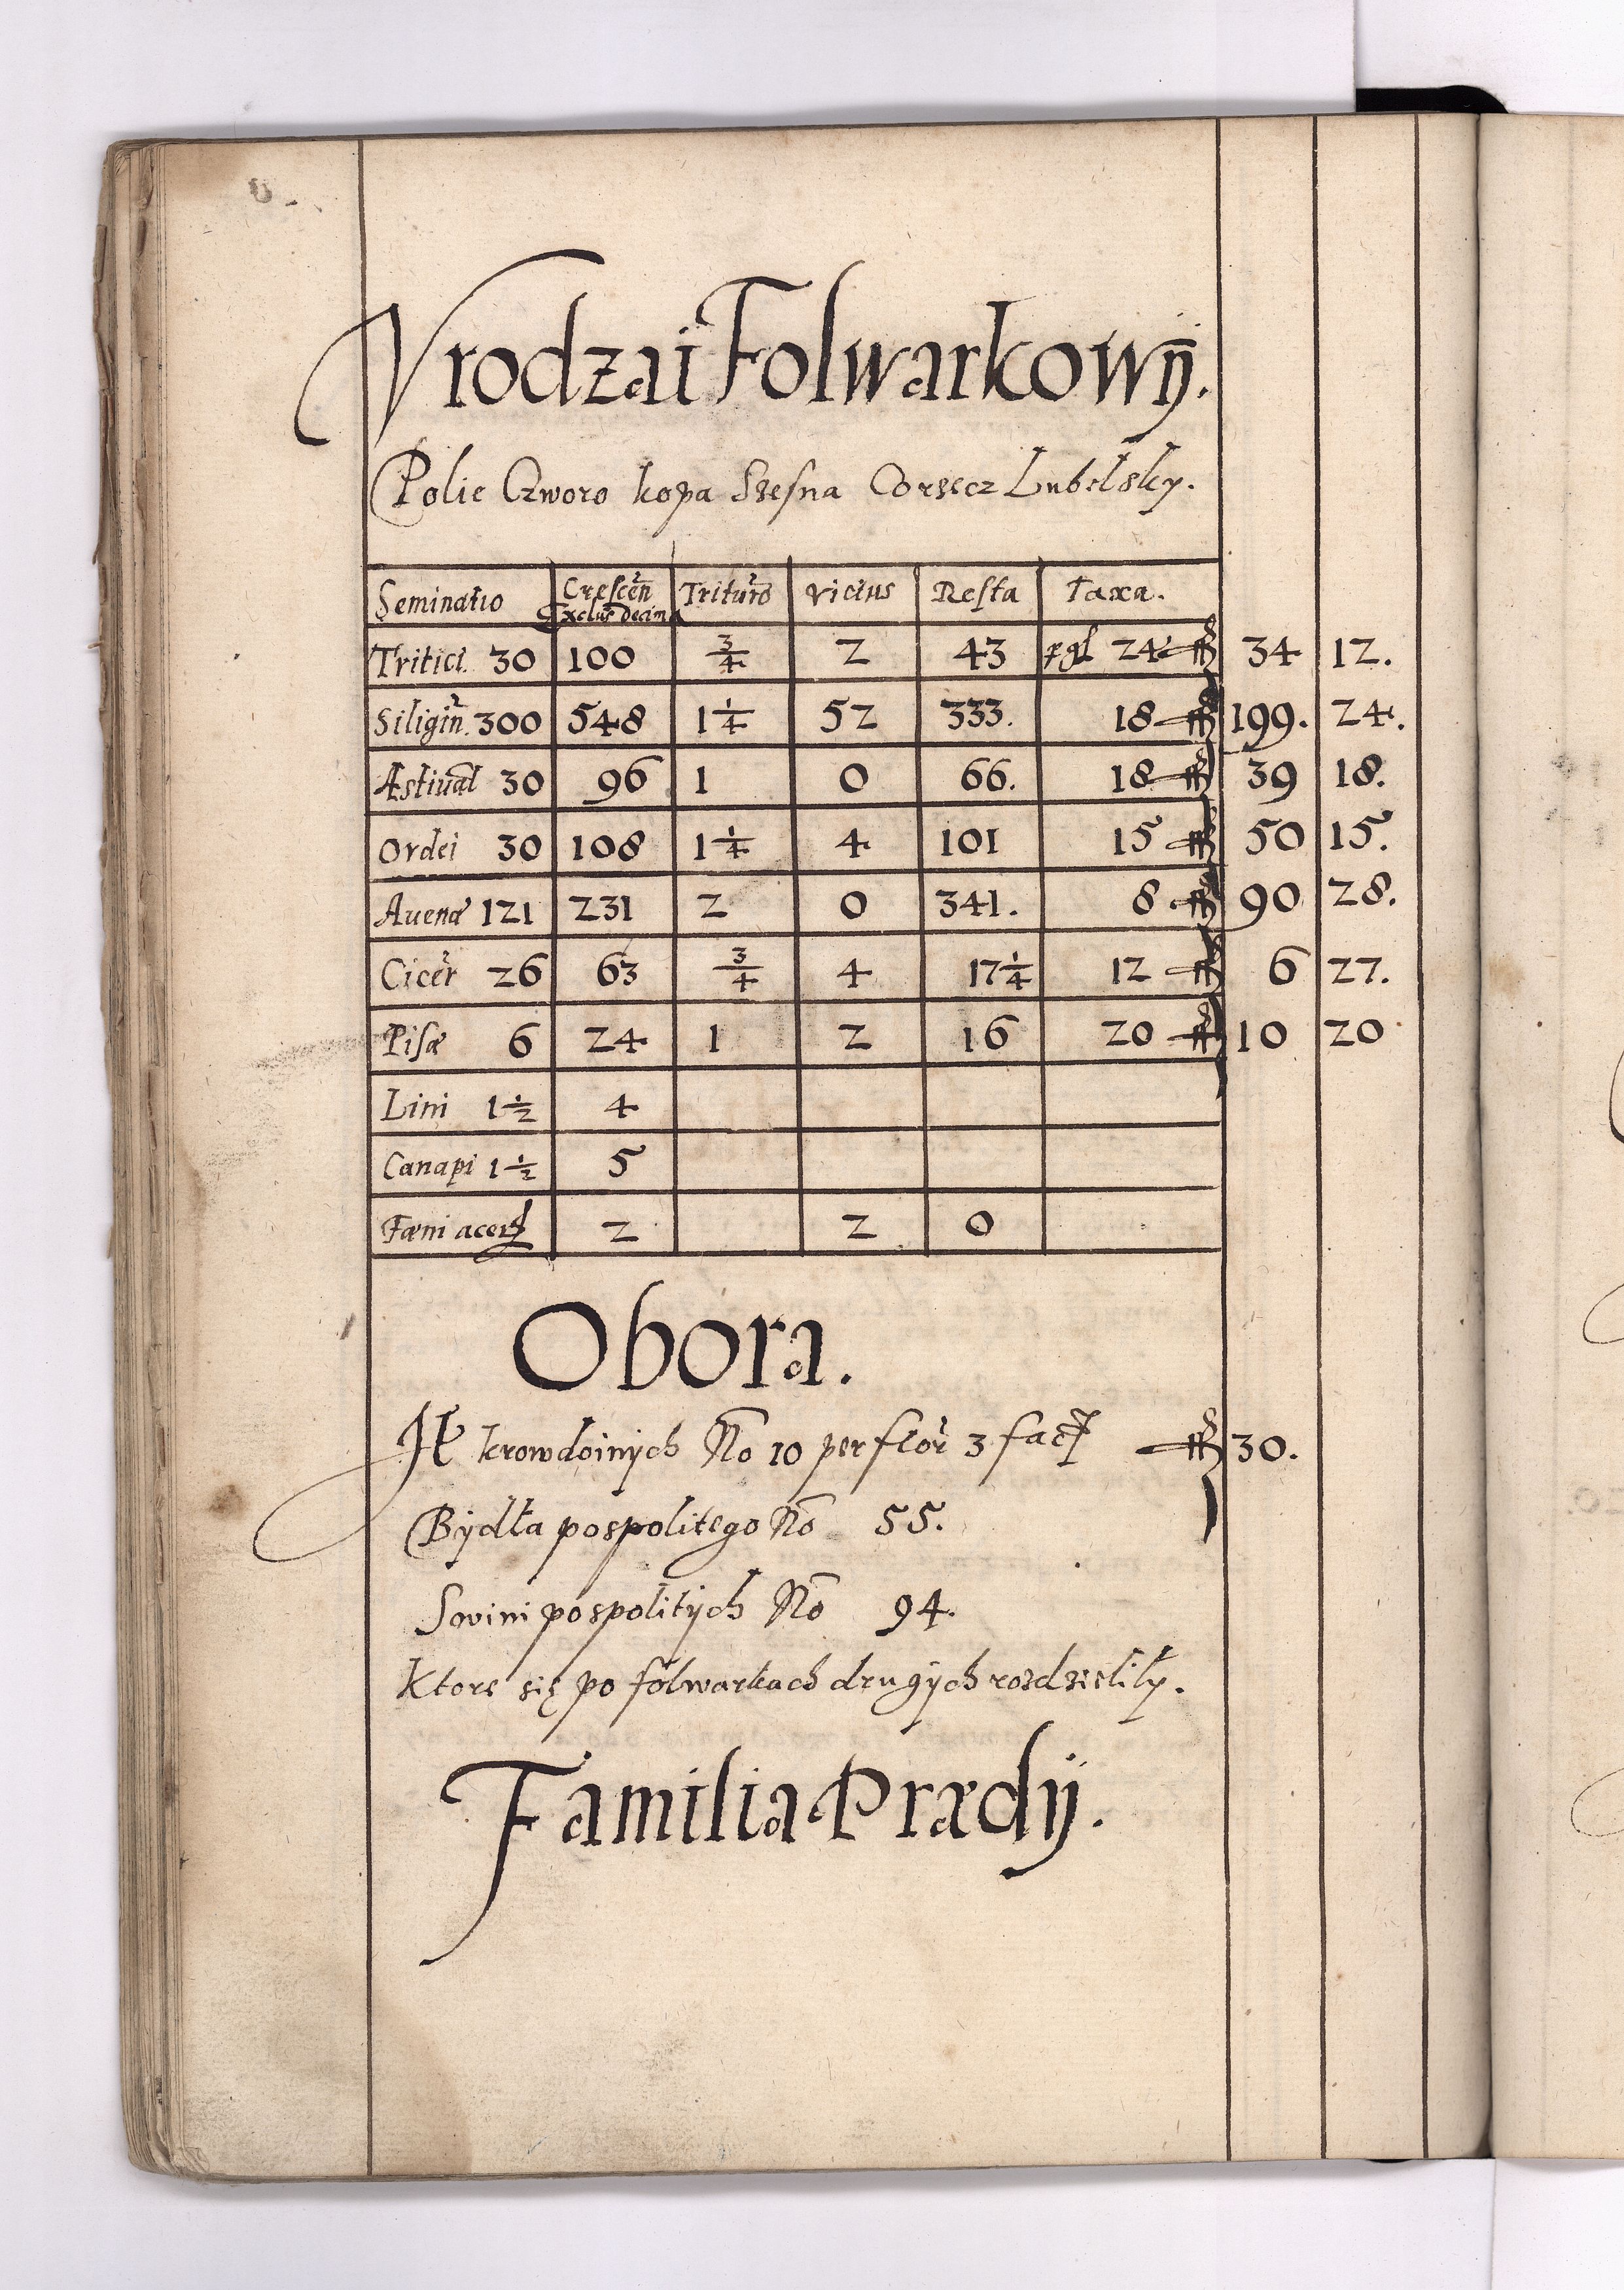 Vrodzai Folwarkowÿ.
Polie Czworo kopa Szesna Corzecz Lubelsky.
Seminatio Crescen Exclus decima Tritura Victus Resta Taxa.
Tritici 30 100 3/4 2 43 pgl 24 ff 34 12.
Siligin. 300 548 1 1/4 52 333. 18 ff 199. 24.
Æstiual 30 96 1 0 66. 18 ff 39 18.
Ordei 30 108 1 1/4 4 101 15 ff 50 15.
Auenæ 121 231 2 0 341. 8 ff 90 28.
Cicer 26 63 3/4 4 17 1/4 12 ff 6 27.
Pisæ 6 24 1 2 16 20 ff 10 20
Lini 1 1/2 4
Canapi 1 1/2 5
Fæni acer 2 2 0
Obora.
It krowdoinych No 10 per flor 3 fac ff 30.
Bydła pospolitego No 55.
Sovini pospolitych No 94.
Ktore się po folwarkach drugÿch rozdzieliły.
Familia Prædÿ.